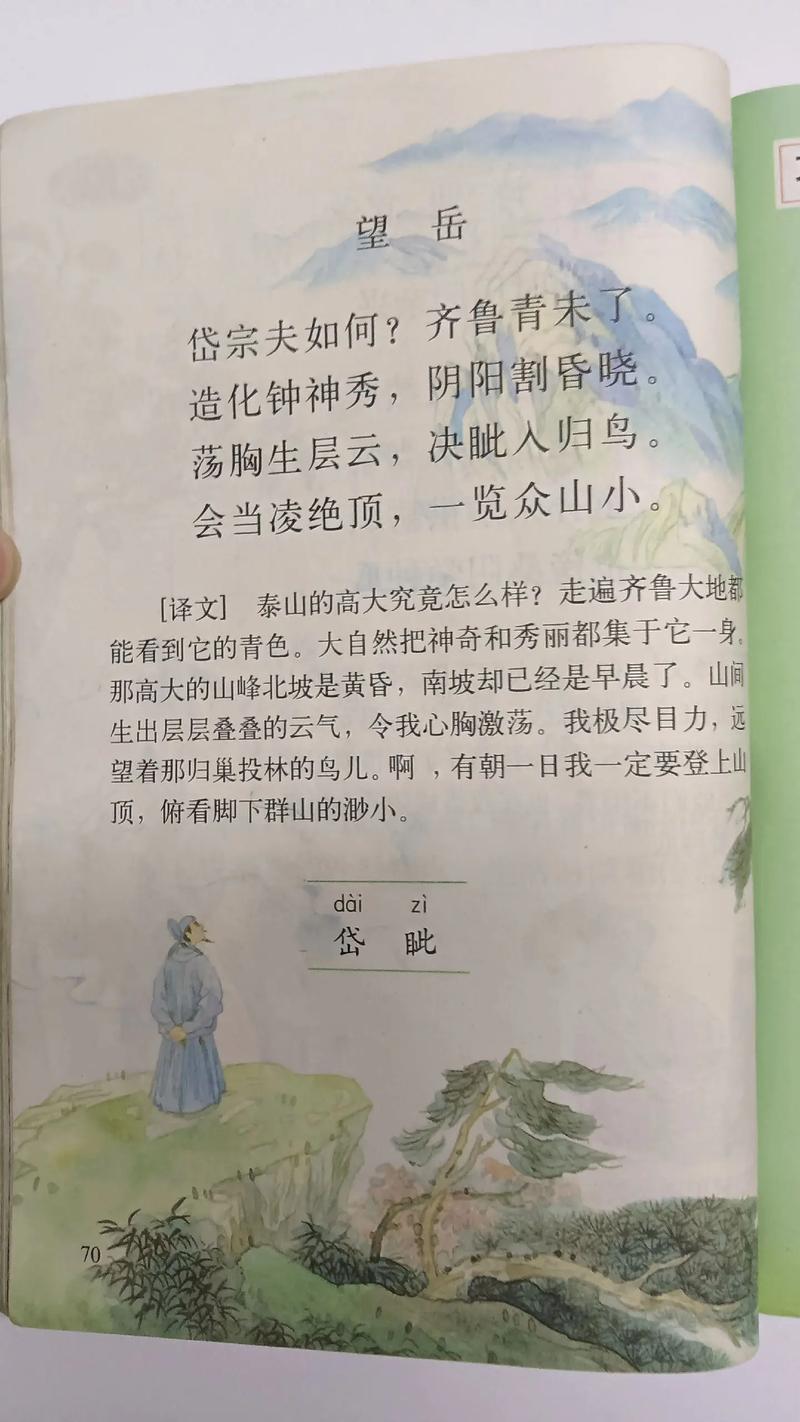 望 岳
岱宗夫如何？齐鲁青未了。
造化钟神秀，阴阳割昏晓。
荡胸生层云，决眦入归鸟。
会当凌绝顶，一览众山小。
[译文] 泰山的高大究竟怎么样？走遍齐鲁大地都
能看到它的青色。大自然把神奇和秀丽都集于它一身。
那高大的山峰北坡是黄昏，南坡却已经是早晨了。山间
生出层层叠叠的云气，令我心胸激荡。我极尽目力，远
望着那归巢投林的鸟儿。啊 ，有朝一日我一定要登上山
顶，俯看脚下群山的渺小。
dài zì
岱 眦
70